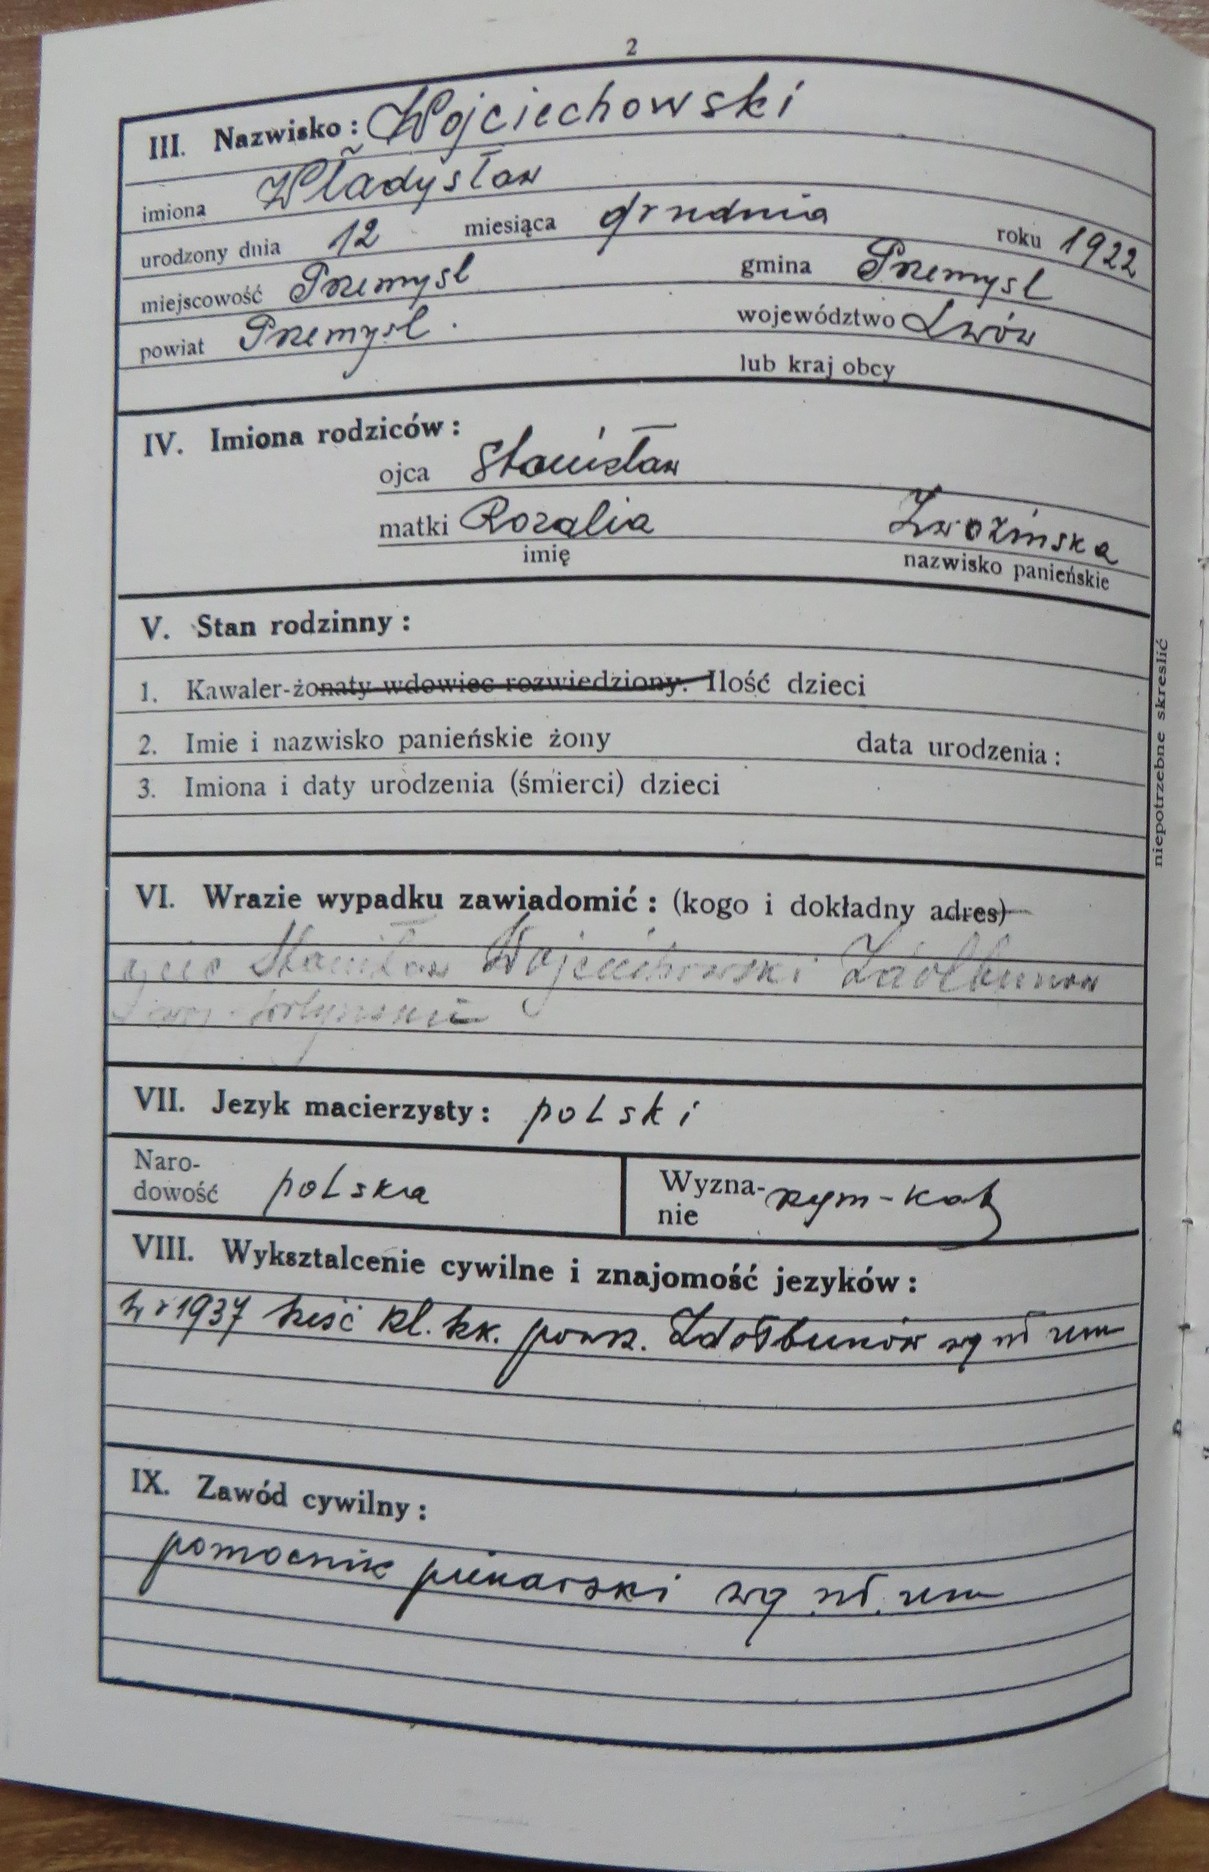 2
III. Nazwisko : Wojciechowski
imiona Władysław
urodzony dnia 12 miesiąca grudnia roku 1922
miejscowość Przemysl gmina Przemysl
powiat Przemysl. województwo Lwów
lub kraj obcy
IV. Imiona rodziców :
ojca Stanisław
matki Rozalia
imię nazwisko panieńskie
V. Stan rodzinny :
1. Kawaler-żonaty-wdowiec-rozwiedziony. Ilość dzieci
2. Imie i nazwisko panieńskie żony data urodzenia :
3. Imiona i daty urodzenia (śmierci) dzieci
niepotrzebne skreslić
VI. Wrazie wypadku zawiadomić : (kogo i dokładny adres)
ojciec Stanisław Wojciechowski Zdołbunow
VII. Jezyk macierzysty : polski
Naro-
dowość polska
Wyzna-
nie rzym-kat
VIII. Wyksztalcenie cywilne i znajomość jezyków :
W r 1937 sześć kl. szk. powsz. Zdołbunów wg wł zezn
IX. Zawód cywilny :
pomocnik piekarski wg wł. zezn